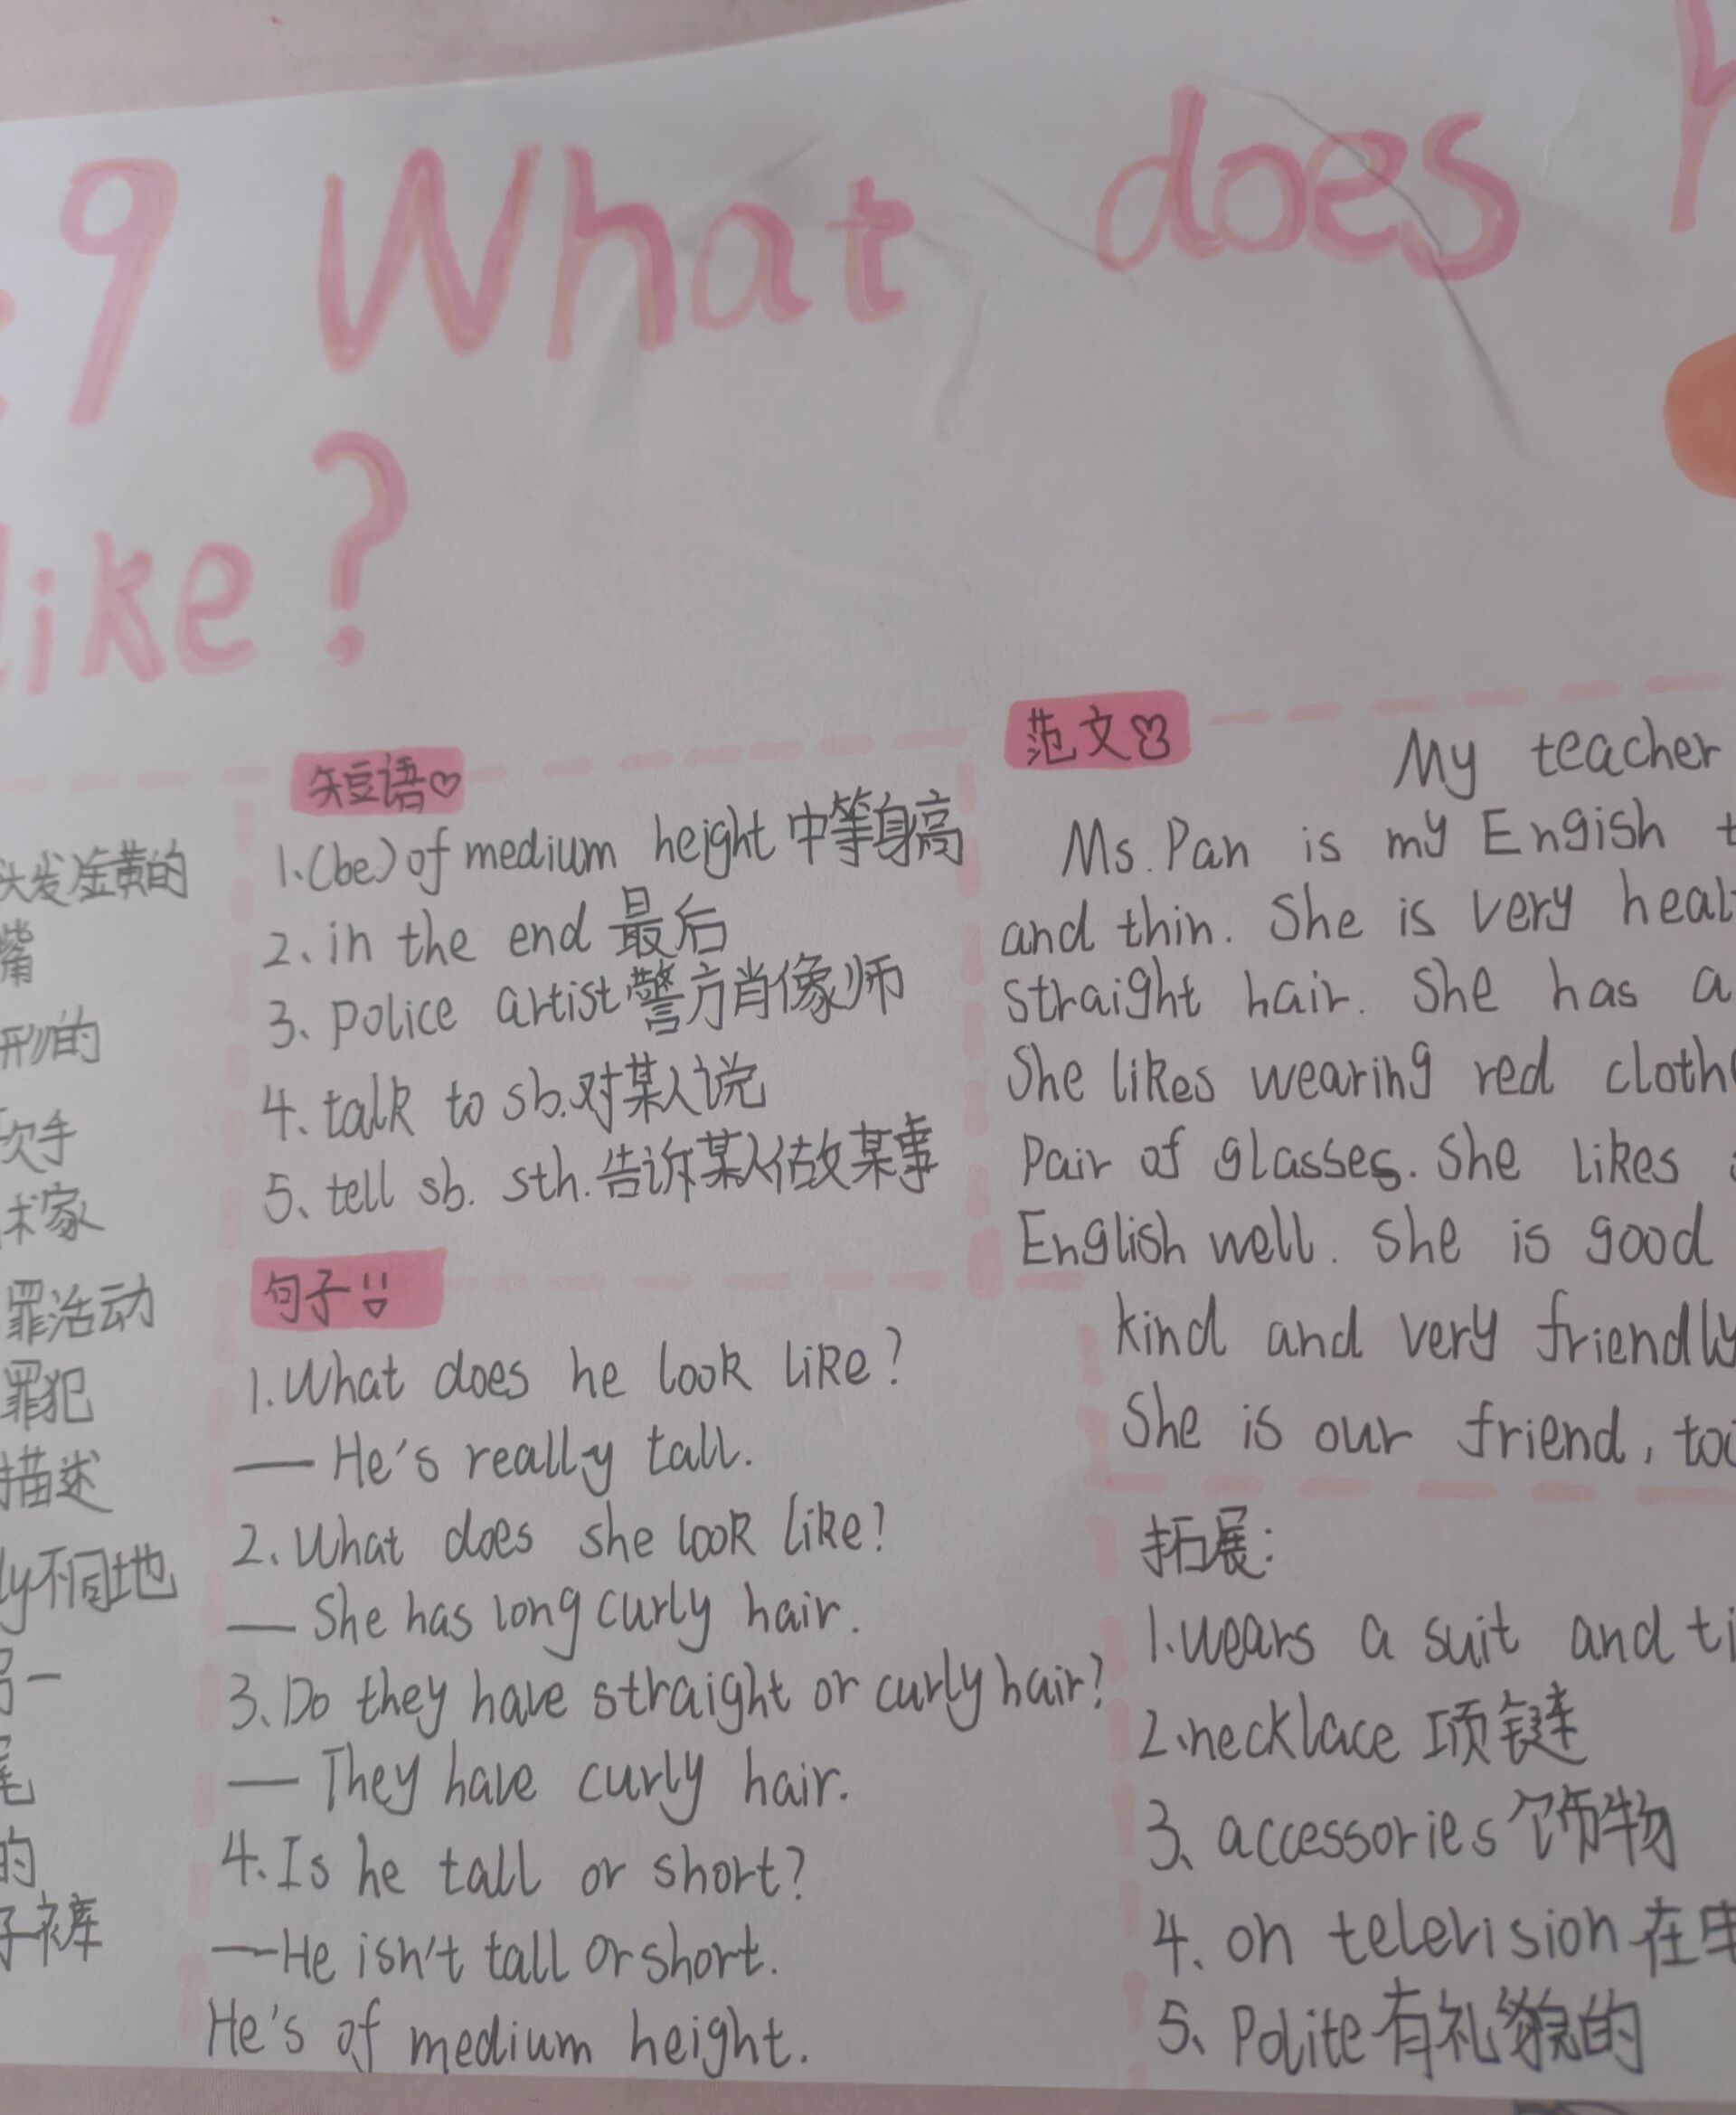 :9 What does h
like?
头发金黄的
嘴
形的
术家
罪活动
罪犯
描述
ly不同地
另一
尾
的
子裤
短语
1.(be) of medium height 中等身高
2、in the end 最后
3、police artist 警方肖像师
4. talk to sb.对某人说
5、tell sb. sth.告诉某人做某事
句子
1.What does he look like?
— He's really tall.
2、What does she look like?
— She has long curly hair.
3、Do they have straight or curly hair?
— They have curly hair.
4.Is he tall or short?
—He isn't tall or short.
He's of medium height.
范文
My teacher
Ms. Pan is my Engish t
and thin. She is very healt
straight hair. She has a
She likes wearing red cloth
Pair of glasses. She likes
English well. She is good
kind and very friendly
She is our friend, too
拓展:
1.wears a suit and ti
2.necklace 项链
3、accessories 饰物
4. on television 在电
5、Polite 有礼貌的